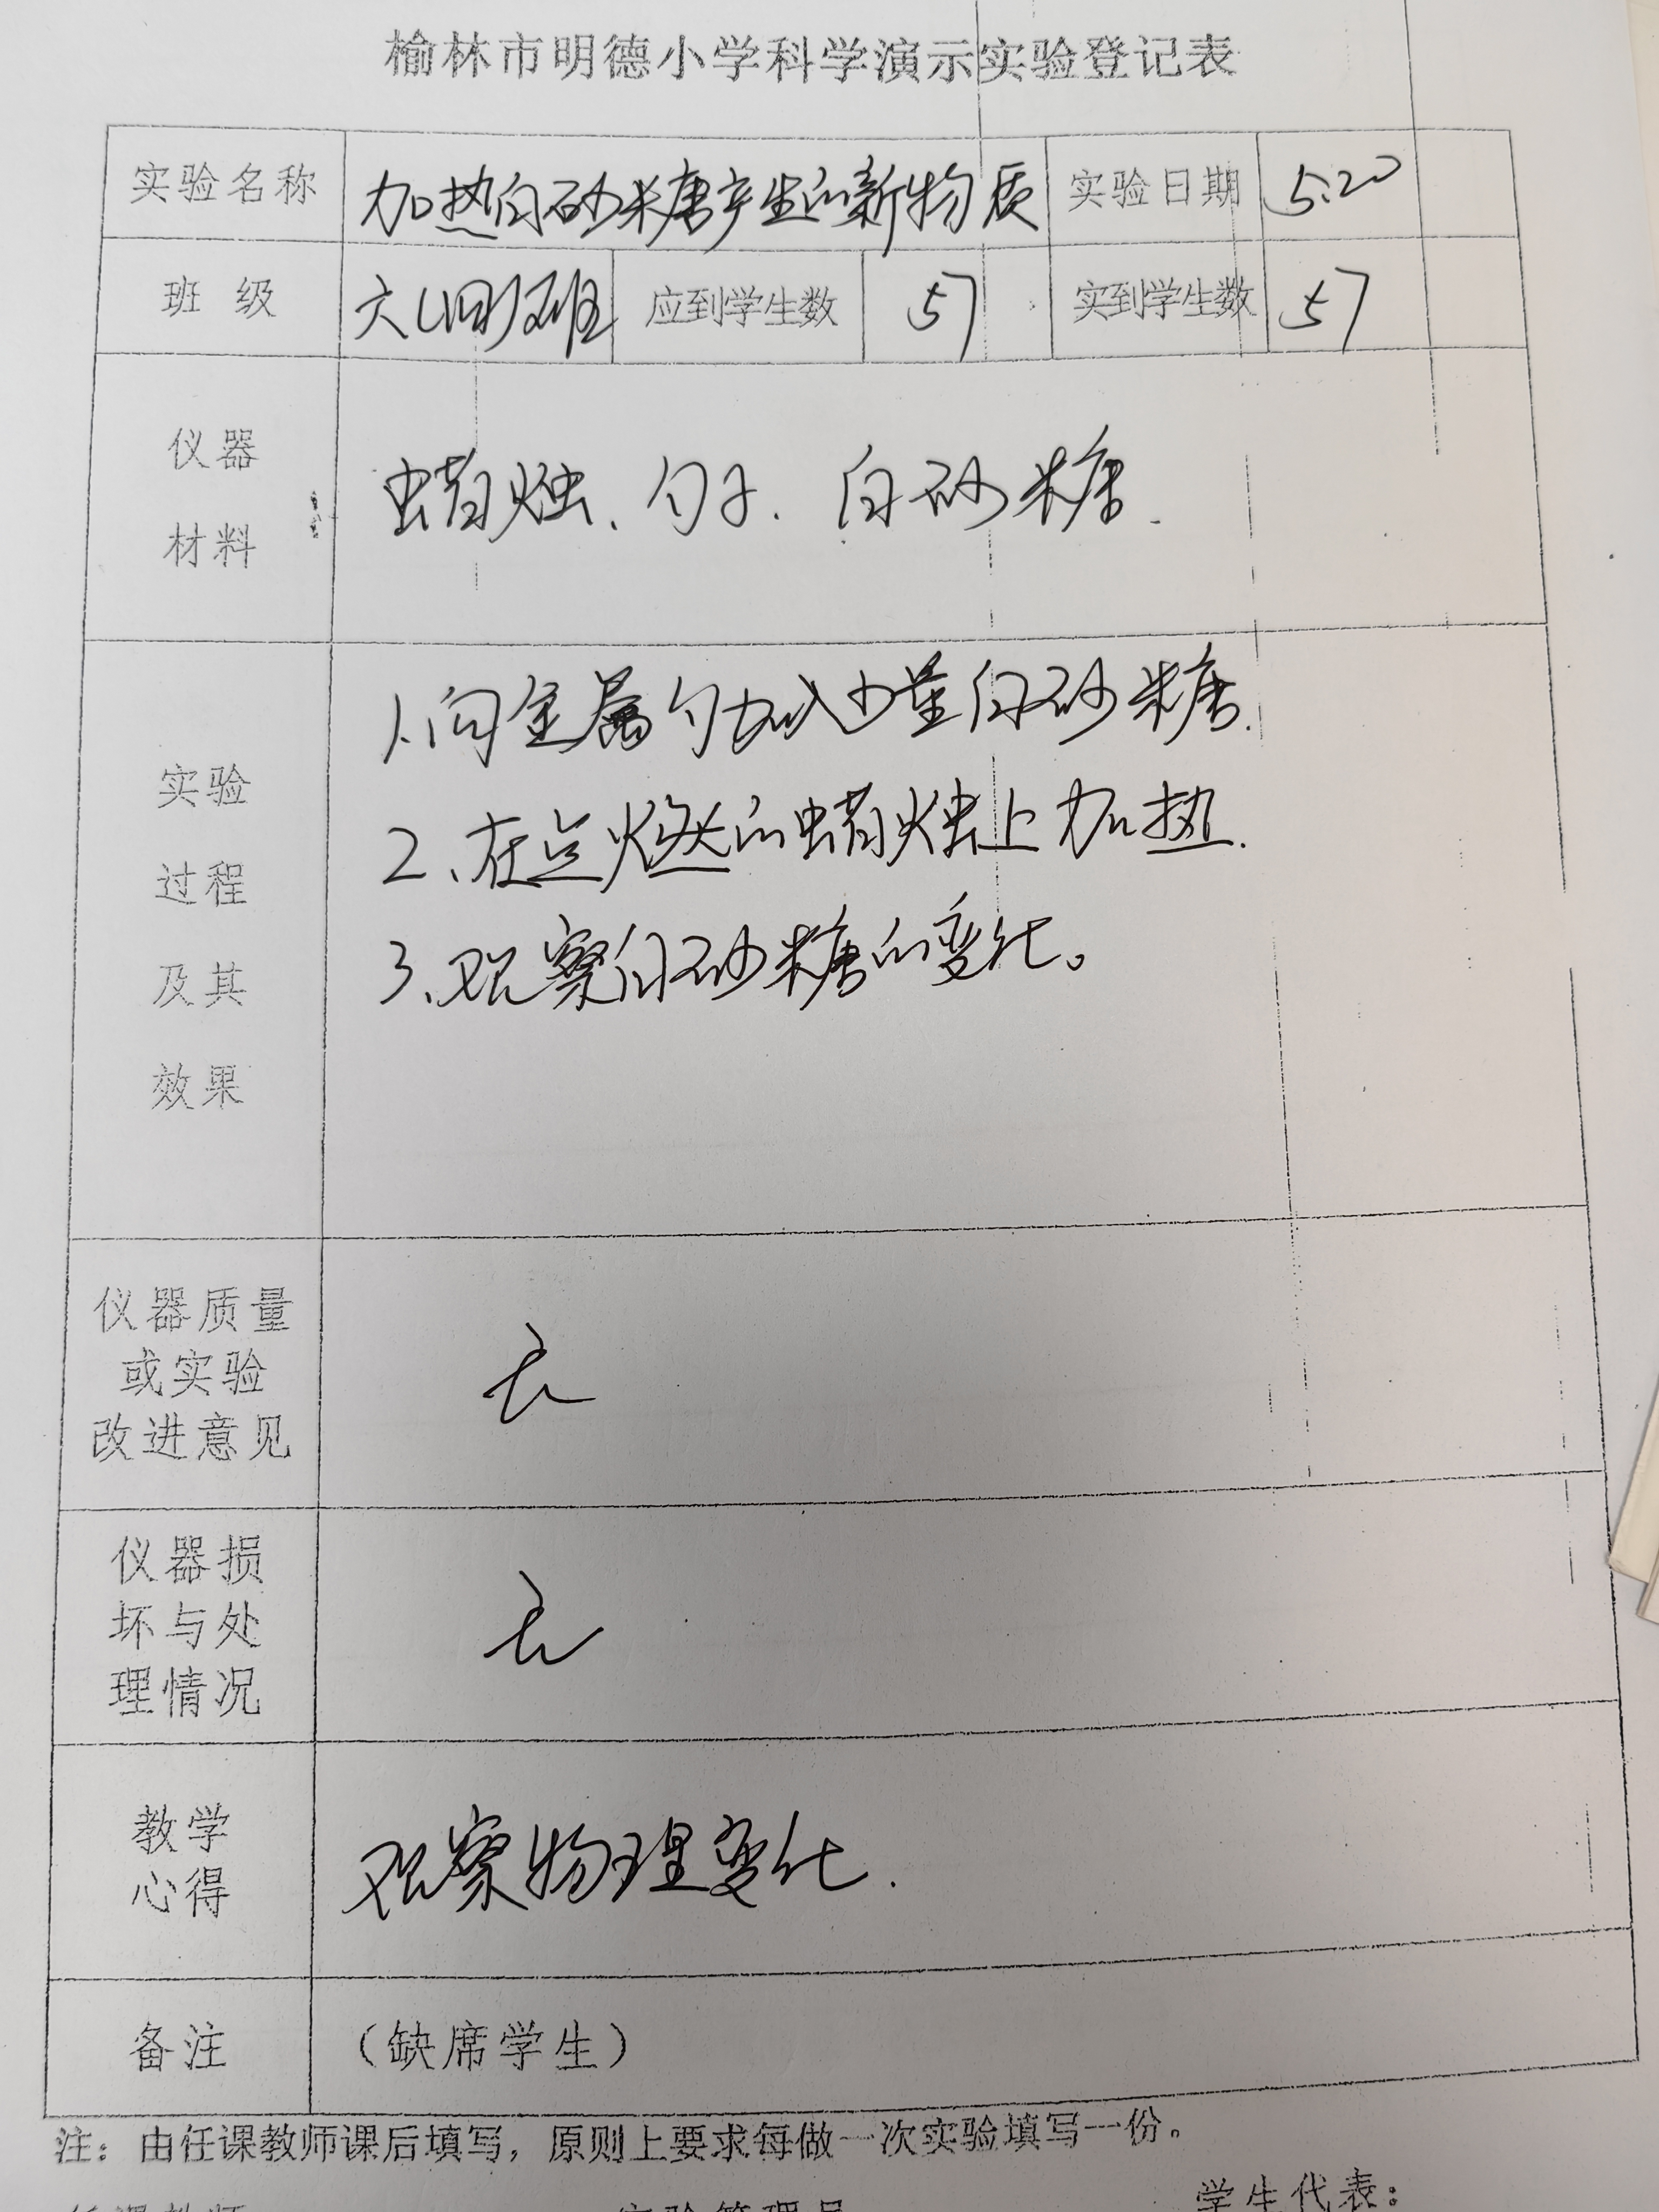 榆林市明德小学科学演示实验登记表
实验名称 加热白砂糖产生的新物质 实验日期 5.20
班级 六(四)班 应到学生数 57 实到学生数 57
仪器
材料
蜡烛、勺子、白砂糖.
实验
过程
及其
效果
1.向金属勺加入少量白砂糖.
2、在点燃的蜡烛上加热.
3、观察白砂糖的变化。
仪器质量
或实验
改进意见
无
仪器损
坏与处
理情况
无
教学
心得
观察物理变化.
备注 （缺席学生）
注：由任课教师课后填写，原则上要求每做一次实验填写一份。
任课教师 实验管理员 学生代表：